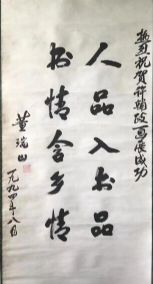 热烈祝贺许辅政画展成功
人品入书品
乡情含乡情
董瑞山
一九九四年八月